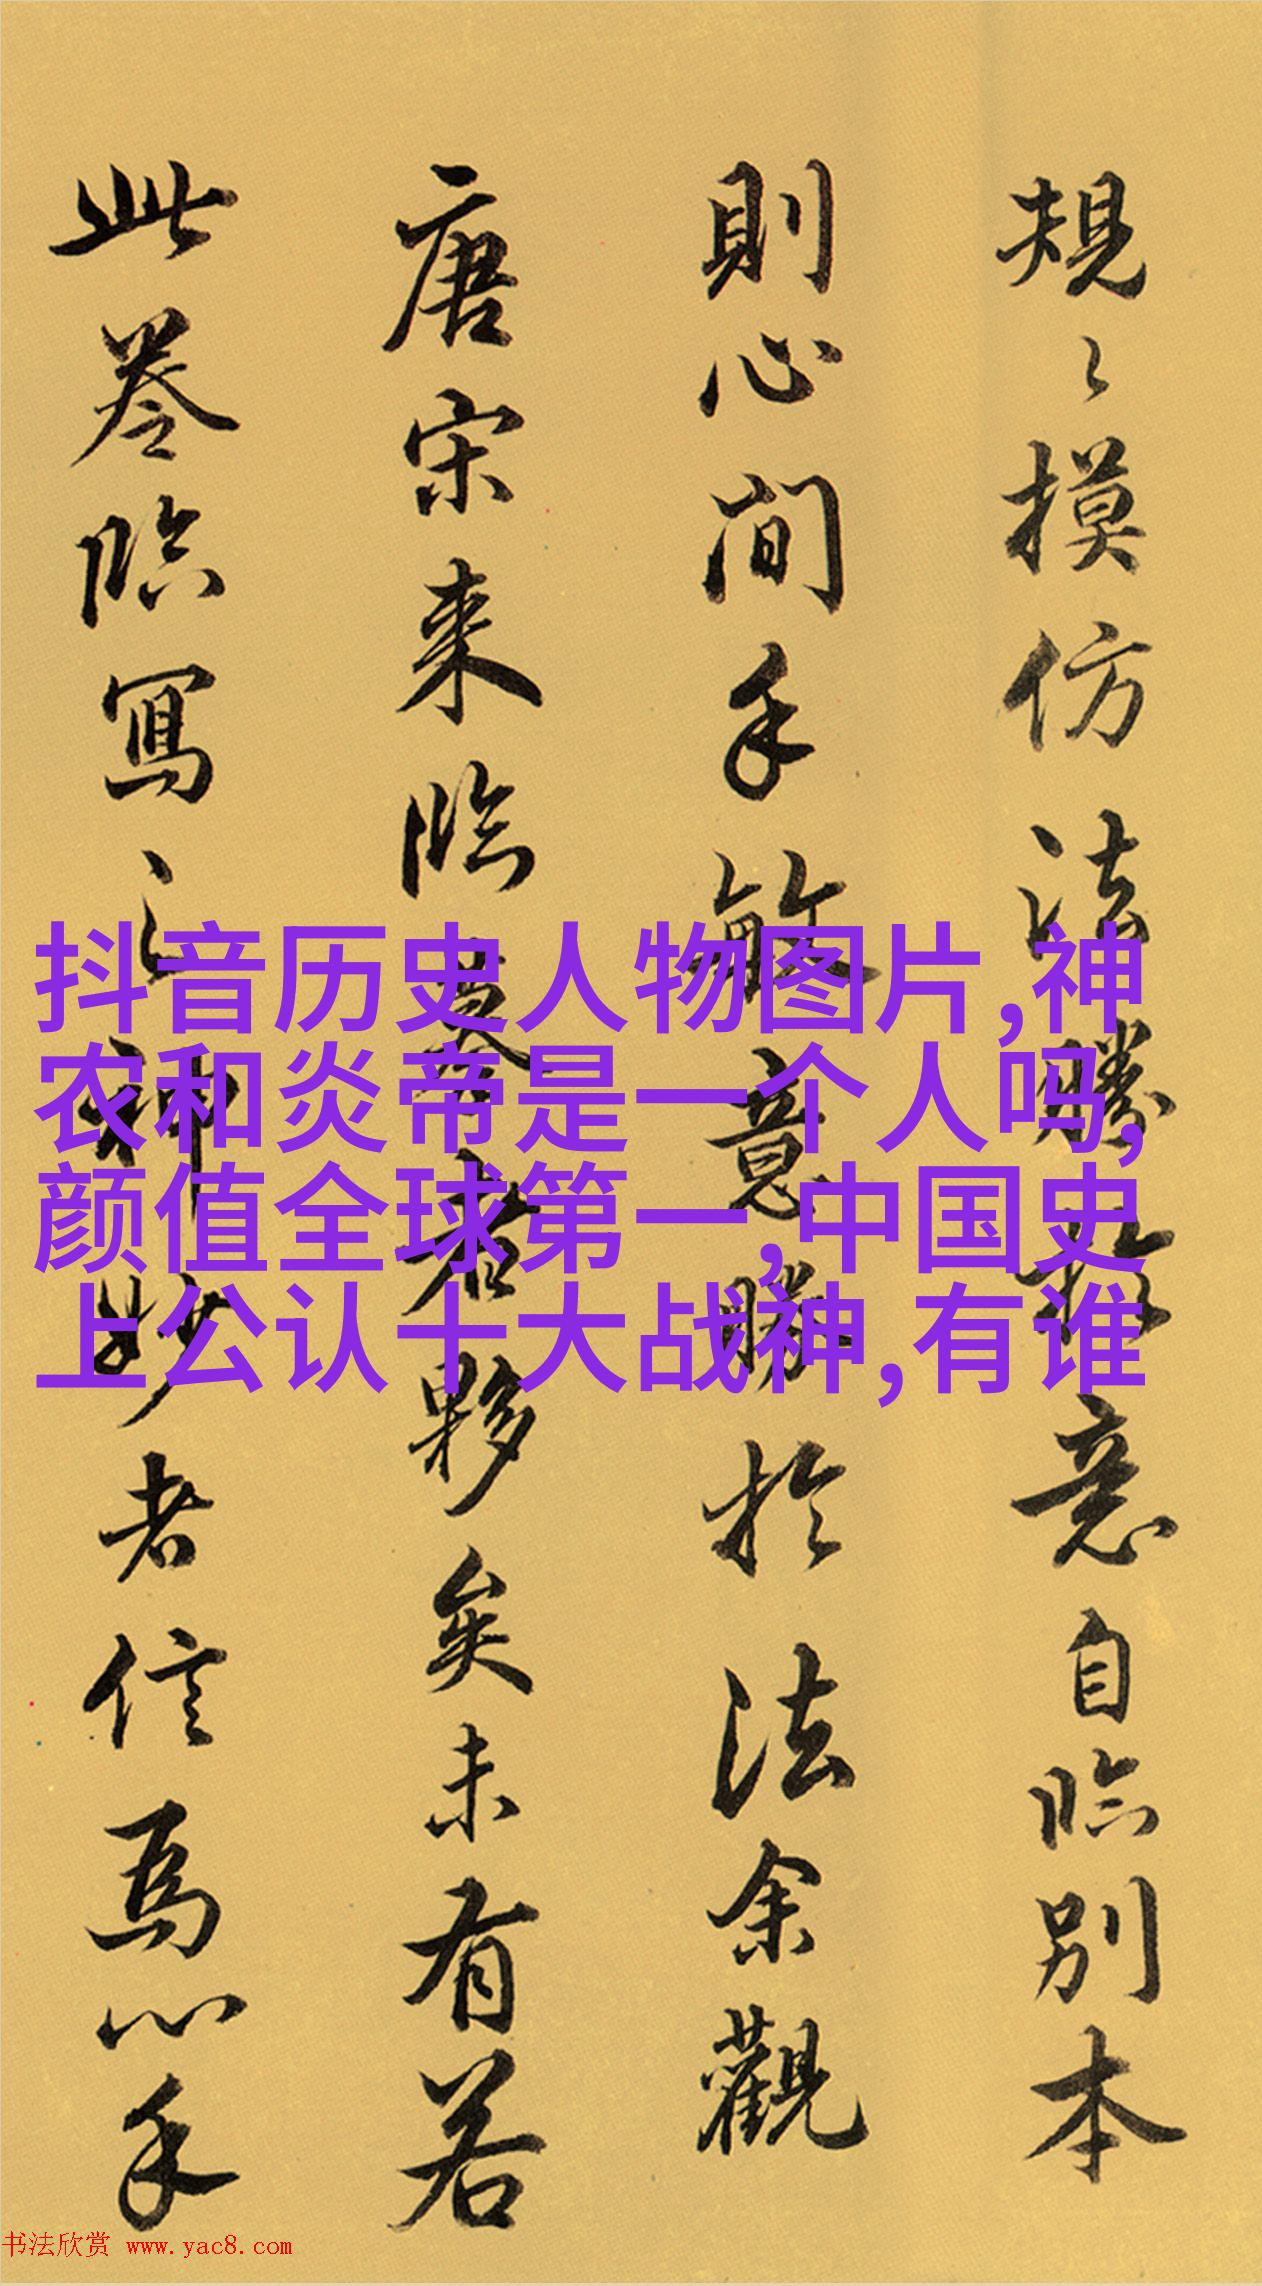 規〻摸仿法勝於意自臨別本
則心間手敏意勝於法余觀
唐宋来臨摹者夥矣未有若
此卷臨寫之神妙者信為心手
抖音历史人物图片,神
农和炎帝是一个人吗,
颜值全球第一,中国史
上公认十大战神,有谁
书法欣赏 www.yac8.com